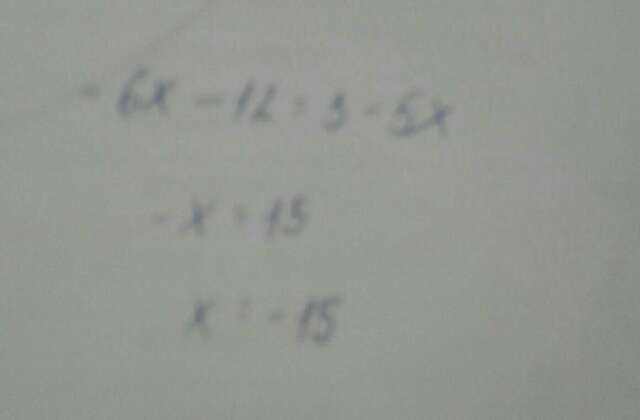 -6x-12=3-5x
-x=15
x=-15